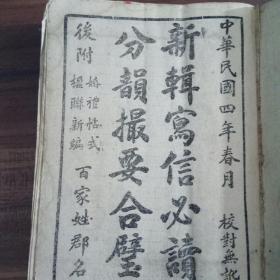 中華民國四年春月 校對無訛
新輯寫信必讀
分韻撮要合璧
後附 婚禮帖式 楹聯新編 百家姓郡名